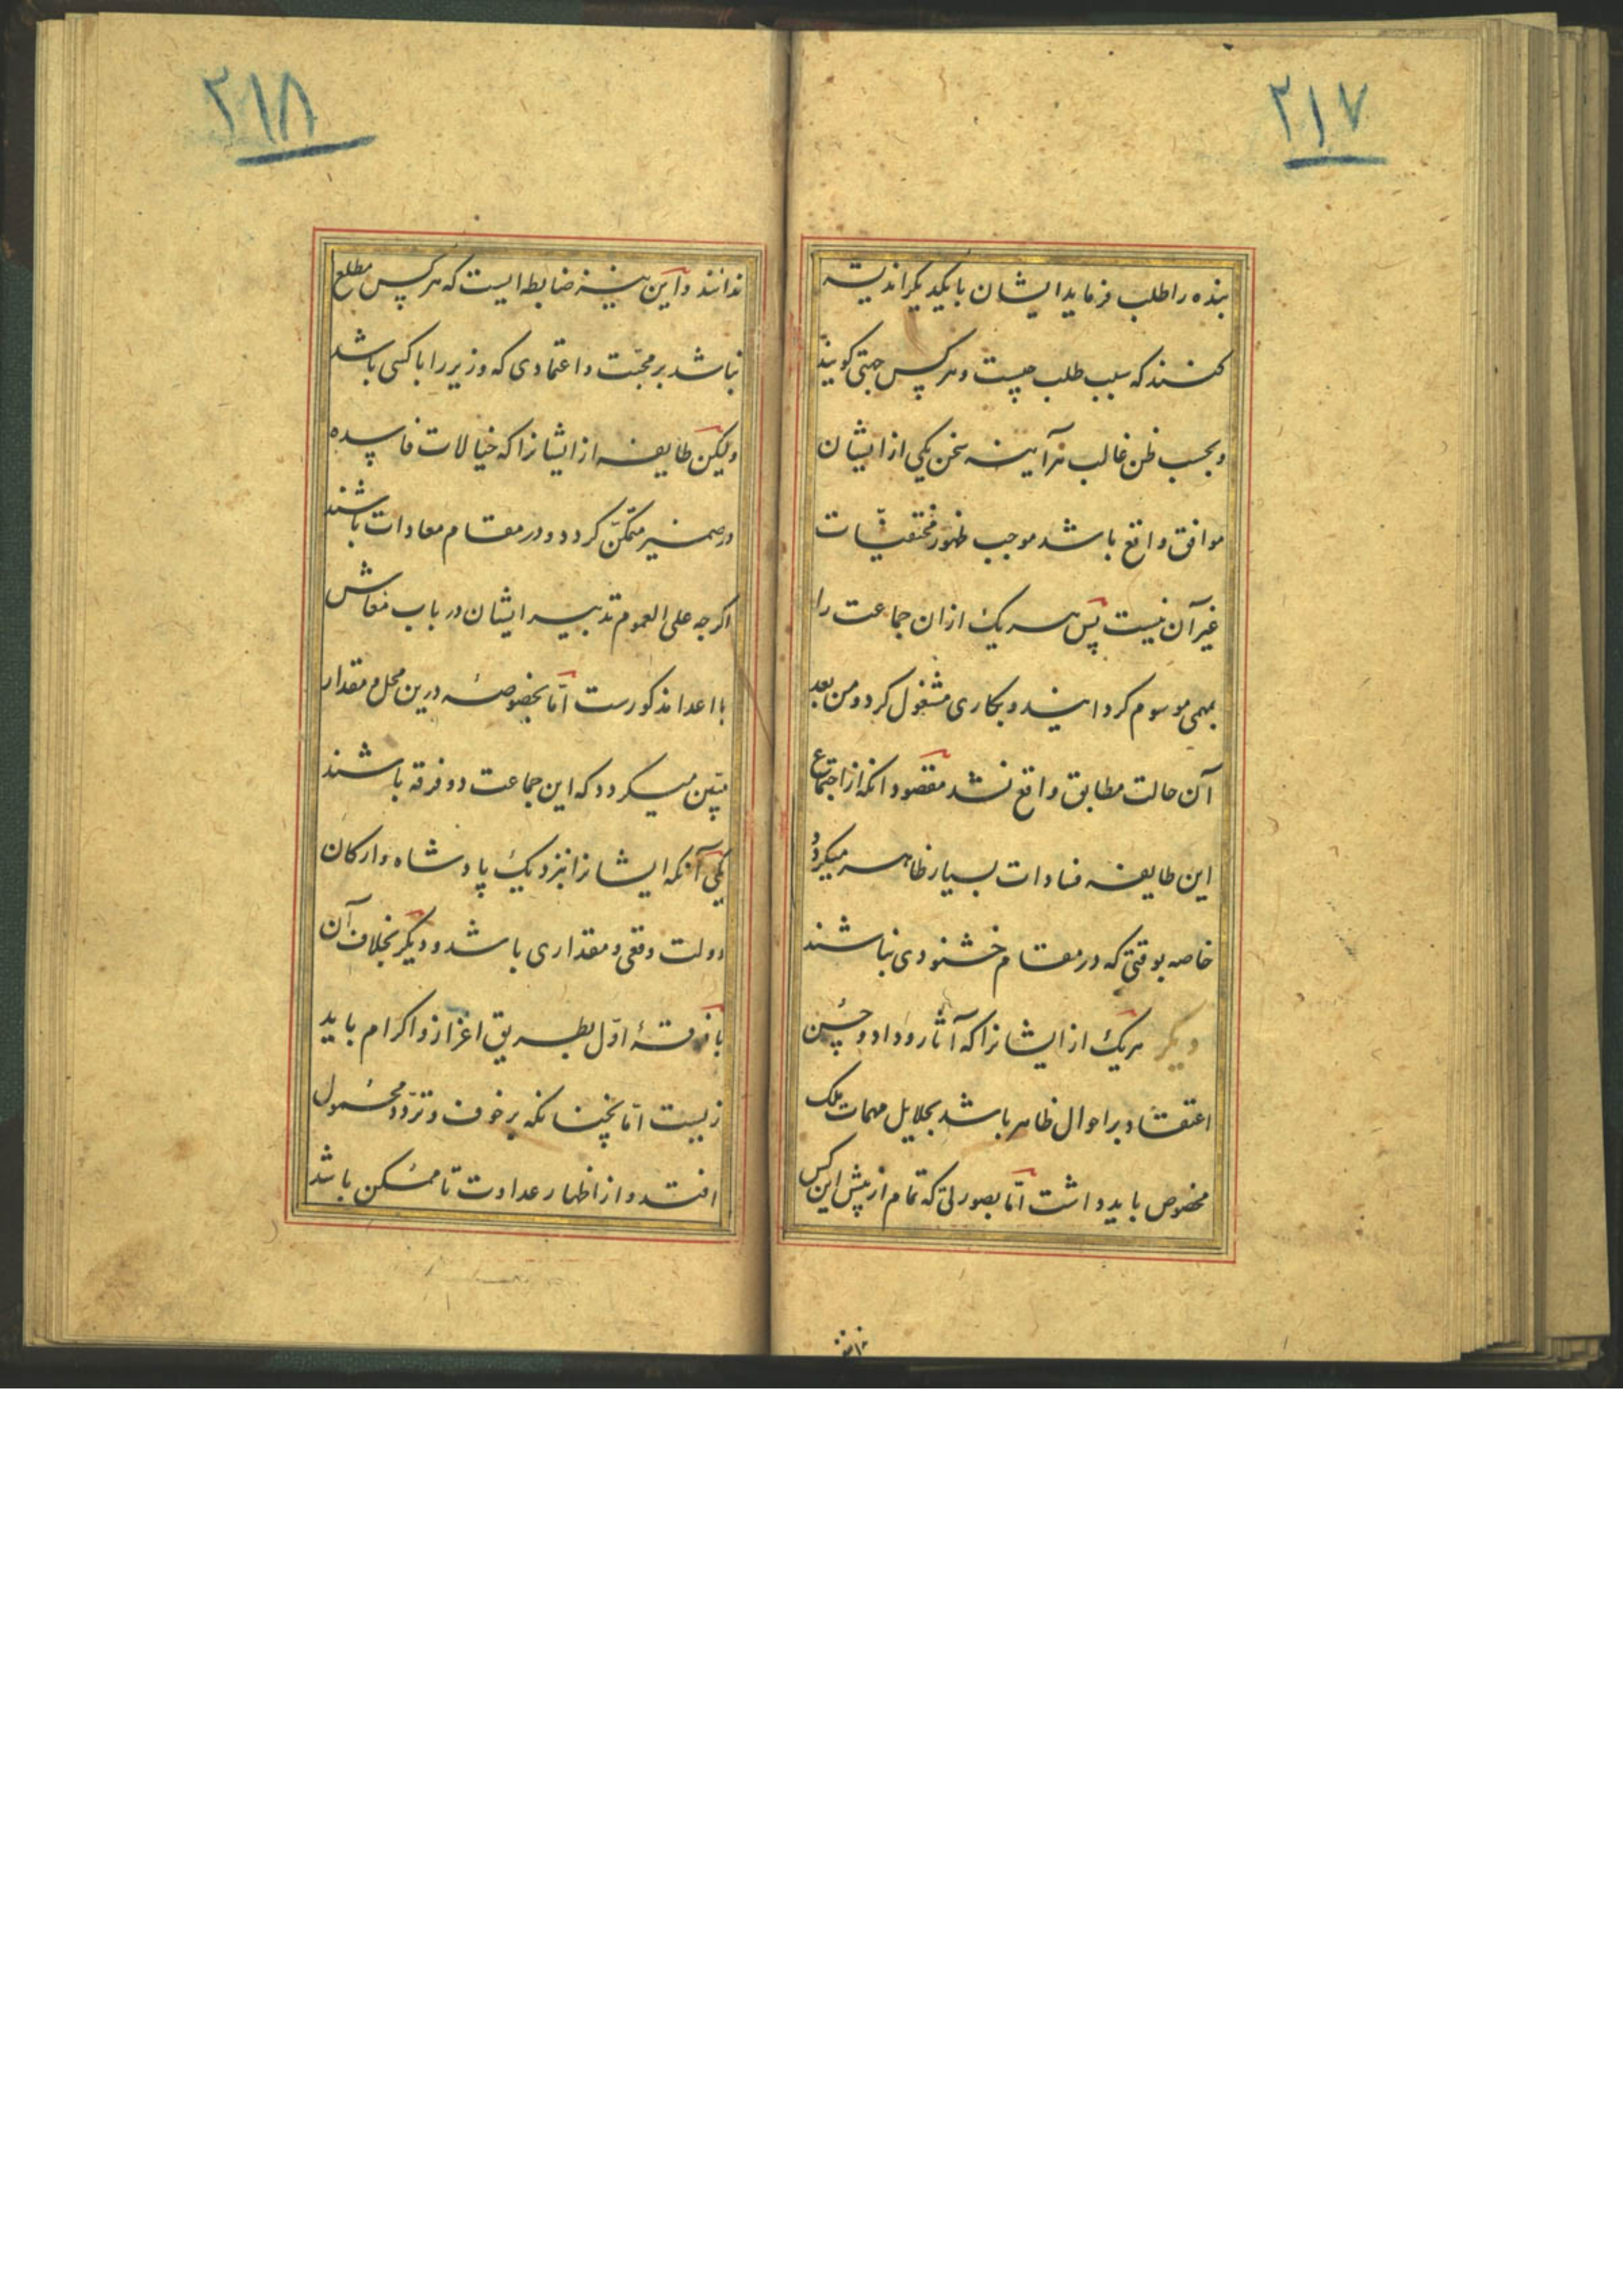 ۲۱۷
بنده را طلب فرماید ایشان با یکدیگر اندیشه
کنند که سبب طلب چیست و هرکس جهتی کویند
و بحسب ظن غالب هرآینه سخن یکی از ایشان
موافق واقع باشد موجب ظهور مختفیات
غیر آن نیست پس هریک ازان جماعت را
بمهمی موسوم کردانید و بکاری مشغول کرد و من بعد
آن حالت مطابق واقع نشد مقصود انکه از اجتماع
این طایفه فسادات بسیار ظاهر میکردد
خاصه بوقتی که در مقام خشنودی نباشند
دیکر هریک از ایشانرا که آثار وداد و حسن
اعتقاد بر احوال ظاهر باشد بجلایل مهمات ملک
مخصوص باید داشت امّا بصورتی که تمام از پیش این کس
۲۱۸
ندانند و این نیز ضابطه ایست که هرکس مطلع
نباشد بر محبّت و اعتمادی که وزیر را با کسی باشد
ولیکن طایفه از ایشانرا که خیالات فاسده
در ضمیر متمکّن کردد و در مقام معادات باشند
اکرچه علی العموم تدبیر ایشان در باب معاش
با اعدا مذکورست امّا بخصوصه درین محل مقدار
مبیّن میکردد که این جماعت دو فرقه باشند
یکی آنکه ایشانرا نزدیک پادشاه و ارکان
دولت وقعی و مقداری باشد و دیکر بخلاف آن
با فرقهٔ اوّل بطریق اعزاز و اکرام باید
زیست امّا بچنانکه بر خوف و تردّد محمول
افتد و از اظهار عداوت تا ممکن باشد